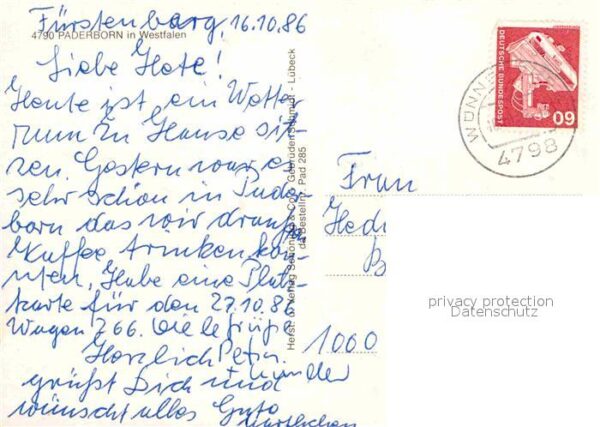 Fürstenberg, 16.10.86
4790 PADERBORN in Westfalen
Liebe Hete!
Heute ist ein Wetter
zum zu Hause sit-
zen. Gestern war es
sehr schön in Pader-
born das wir draußen
Kaffee trinken kon-
nten. Habe eine Platz-
karte für den 27.10.86
Wagen 266.
Herzlich
grüßt Dich und
wünscht alles Gute
Gebrüder Schmidt - Lübeck
Bestellnr. Pad 285
DEUTSCHE BUNDESPOST
60
WÜNNE
4798
Frau
Hed
B
1000
privacy protection
Datenschutz